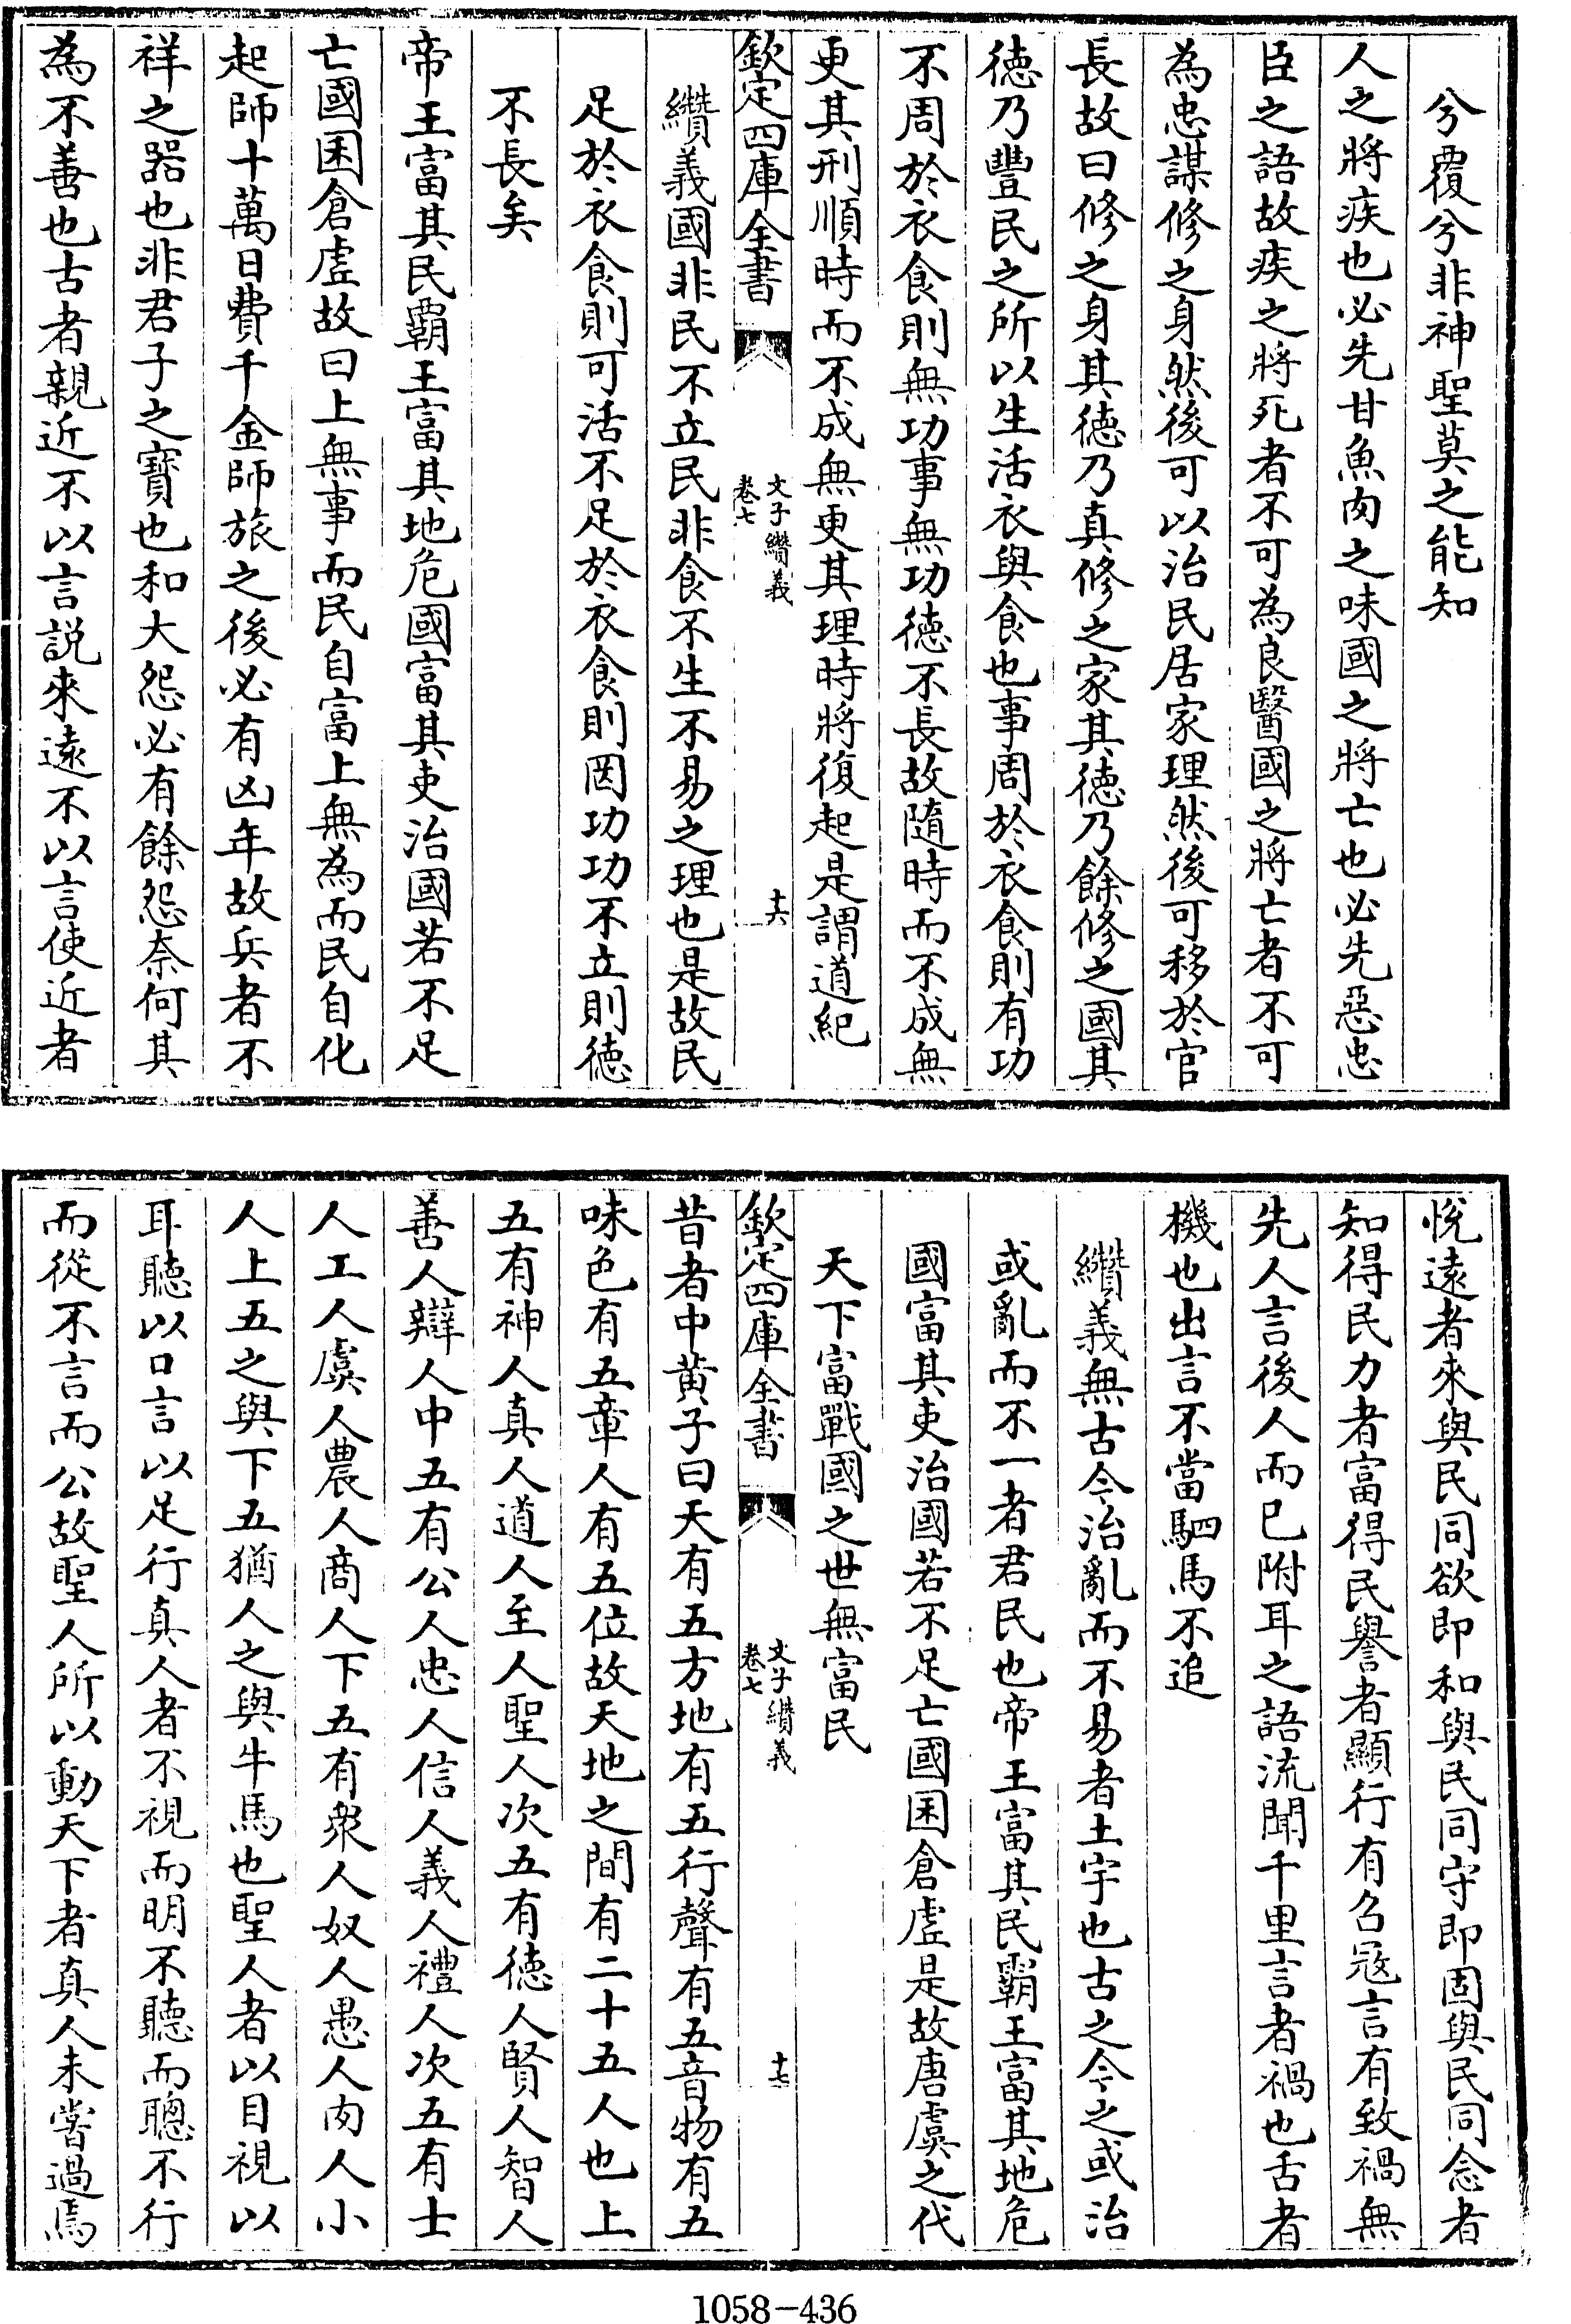 兮覆兮非神聖莫之能知
人之將疾也必先甘魚肉之味國之將亡也必先惡忠
臣之語故疾之將死者不可為良醫國之將亡者不可
為忠謀修之身然後可以治民居家理然後可移於官
長故曰修之身其徳乃真修之家其徳乃餘修之國其
徳乃豐民之所以生活衣與食也事周於衣食則有功
不周於衣食則無功事無功徳不長故隨時而不成無
更其刑順時而不成無更其理時將復起是謂道紀
欽定四庫全書
文子纘義
卷七
十六
纘義國非民不立民非食不生不易之理也是故民
足於衣食則可活不足於衣食則罔功功不立則徳
不長矣
帝王富其民霸王富其地危國富其吏治國若不足
亡國囷倉虛故曰上無事而民自富上無為而民自化
起師十萬日費千金師旅之後必有凶年故兵者不
祥之器也非君子之寶也和大怨必有餘怨奈何其
為不善也古者親近不以言説來遠不以言使近者
悅遠者來與民同欲即和與民同守即固與民同念者
知得民力者富得民譽者顯行有召寇言有致禍無
先人言後人而已附耳之語流聞千里言者禍也舌者
機也出言不當駟馬不追
纘義無古今治亂而不易者土宇也古之今之或治
或亂而不一者君民也帝王富其民霸王富其地危
國富其吏治國若不足亡國囷倉虛是故唐虞之代
天下富戰國之世無富民
欽定四庫全書
文子纘義
卷七
十七
昔者中黄子曰天有五方地有五行聲有五音物有五
味色有五章人有五位故天地之間有二十五人也上
五有神人真人道人至人聖人次五有徳人賢人智人
善人辯人中五有公人忠人信人義人禮人次五有士
人工人虞人農人商人下五有衆人奴人愚人肉人小
人上五之與下五猶人之與牛馬也聖人者以目視以
耳聽以口言以足行真人者不視而明不聽而聰不行
而從不言而公故聖人所以動天下者真人未嘗過焉
1058-436